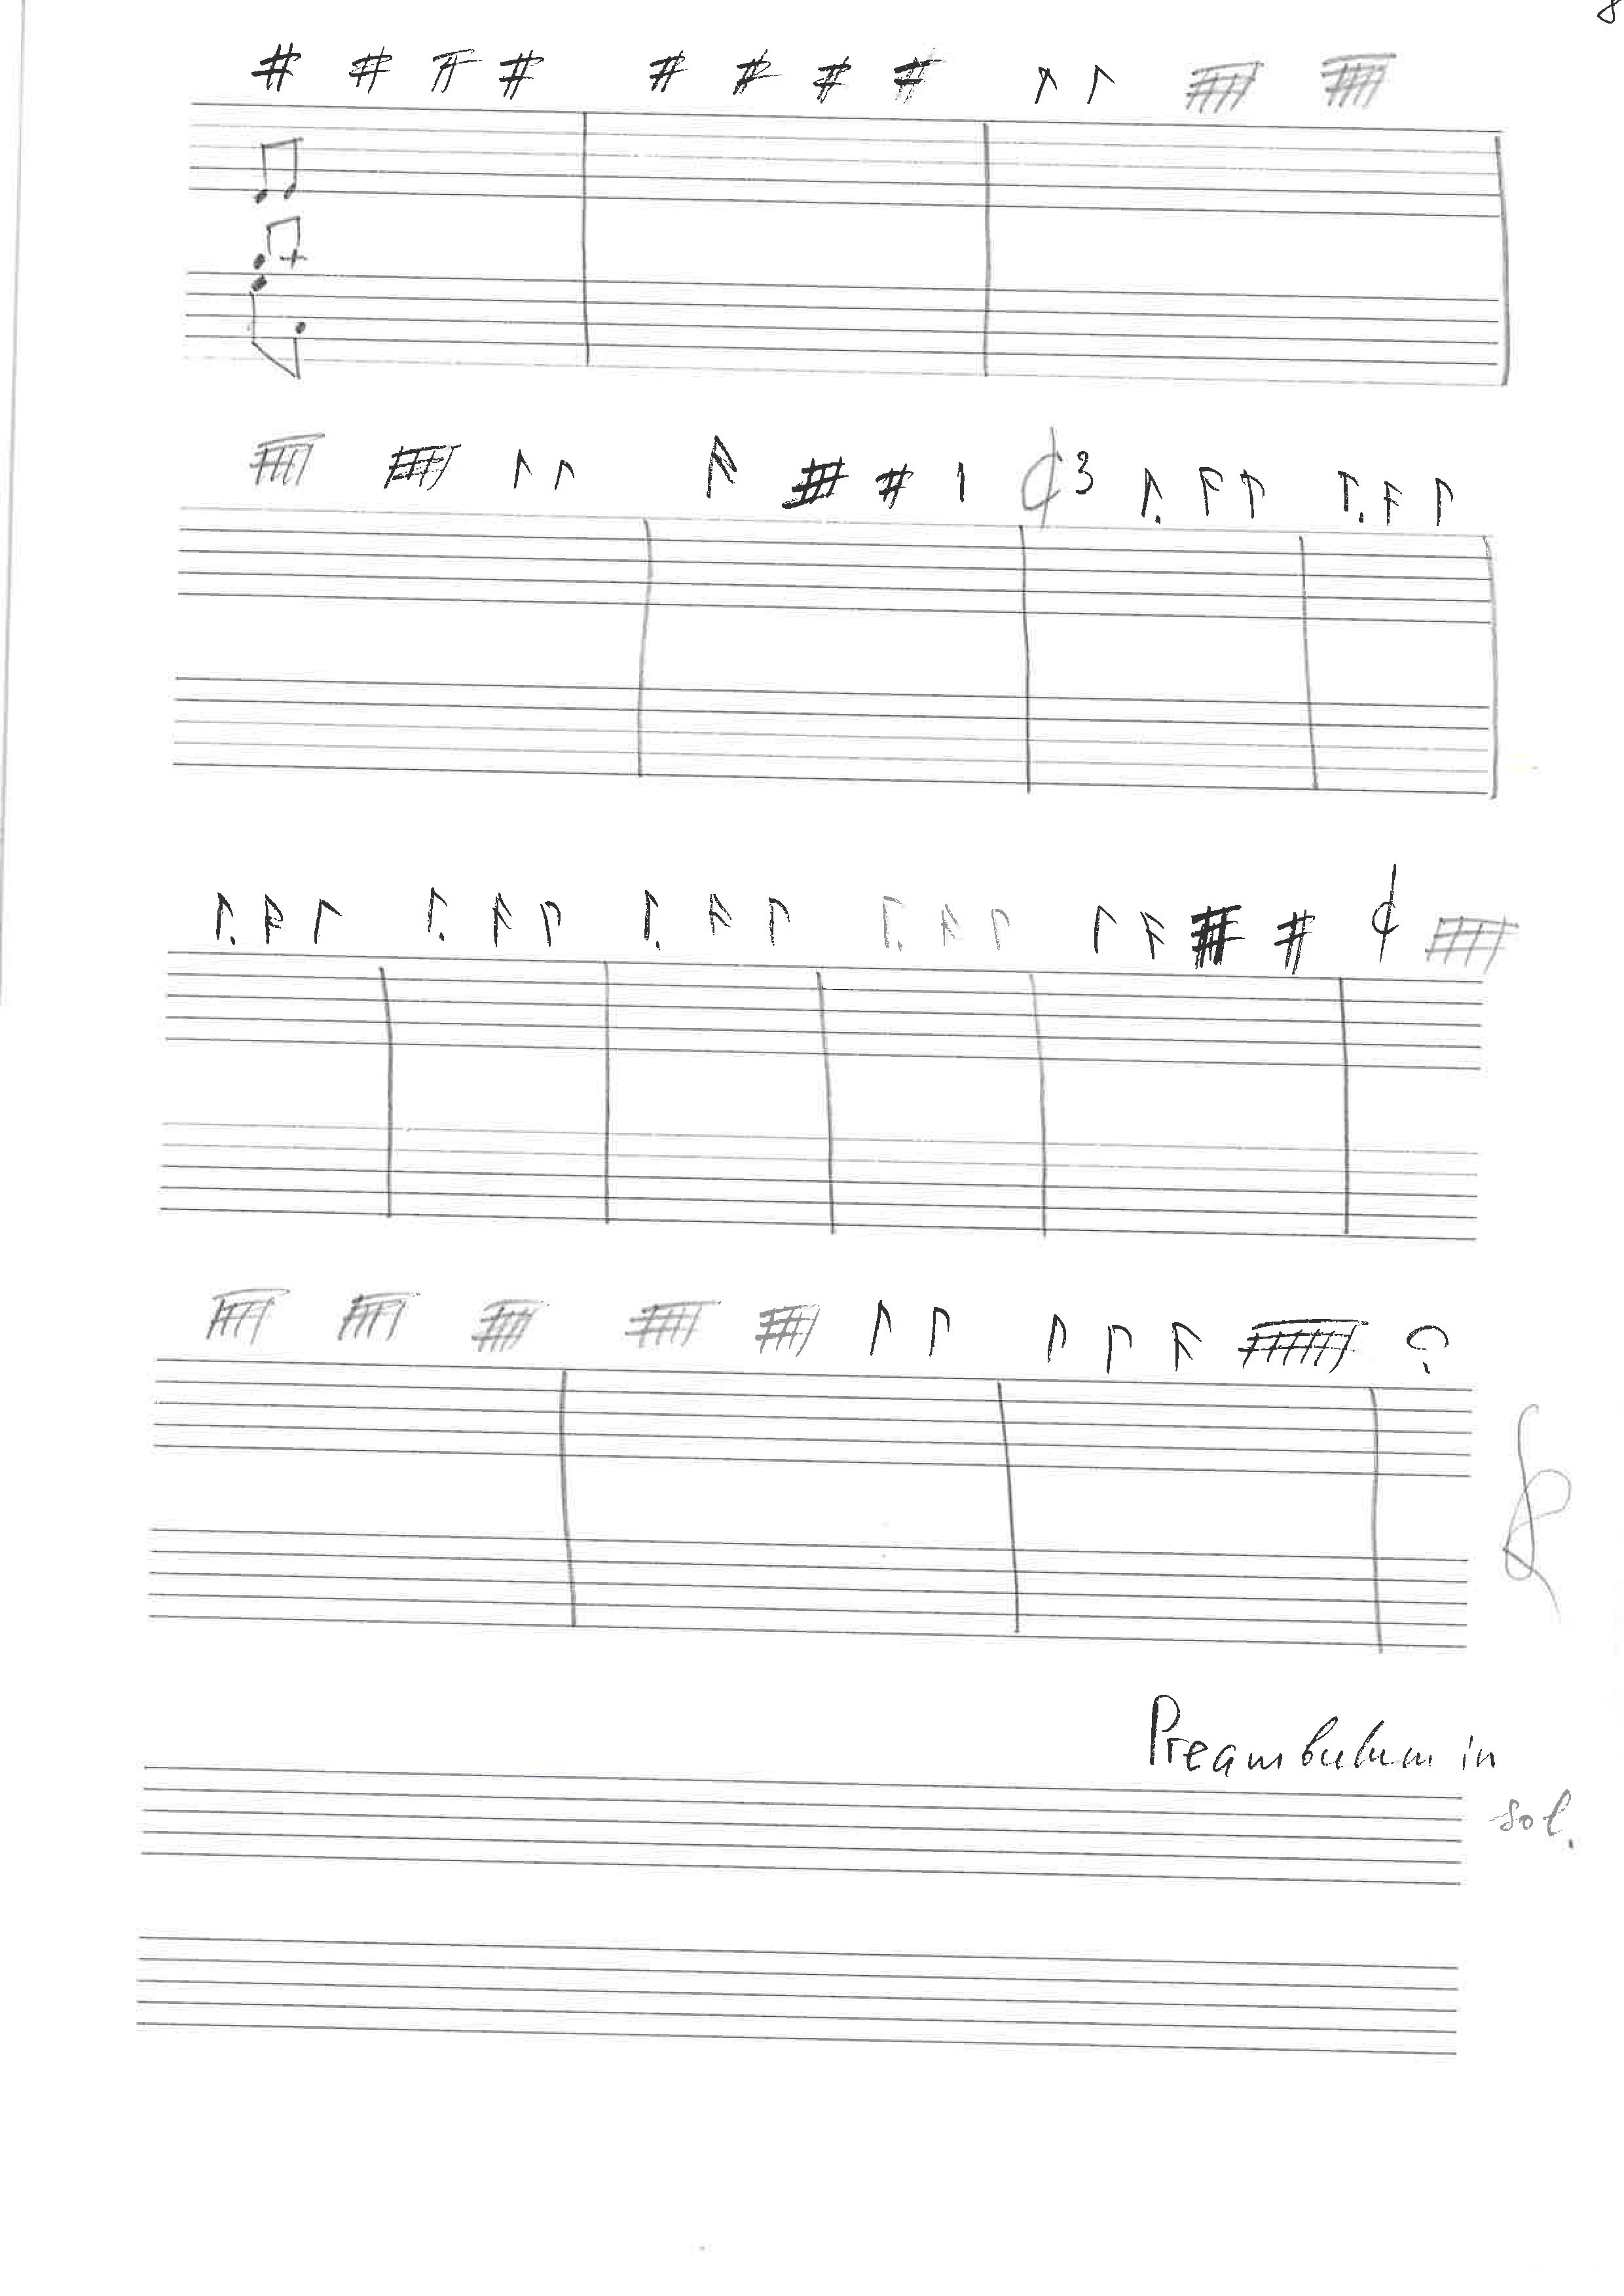 8
¢ 3
¢
Preambulum in
sol.